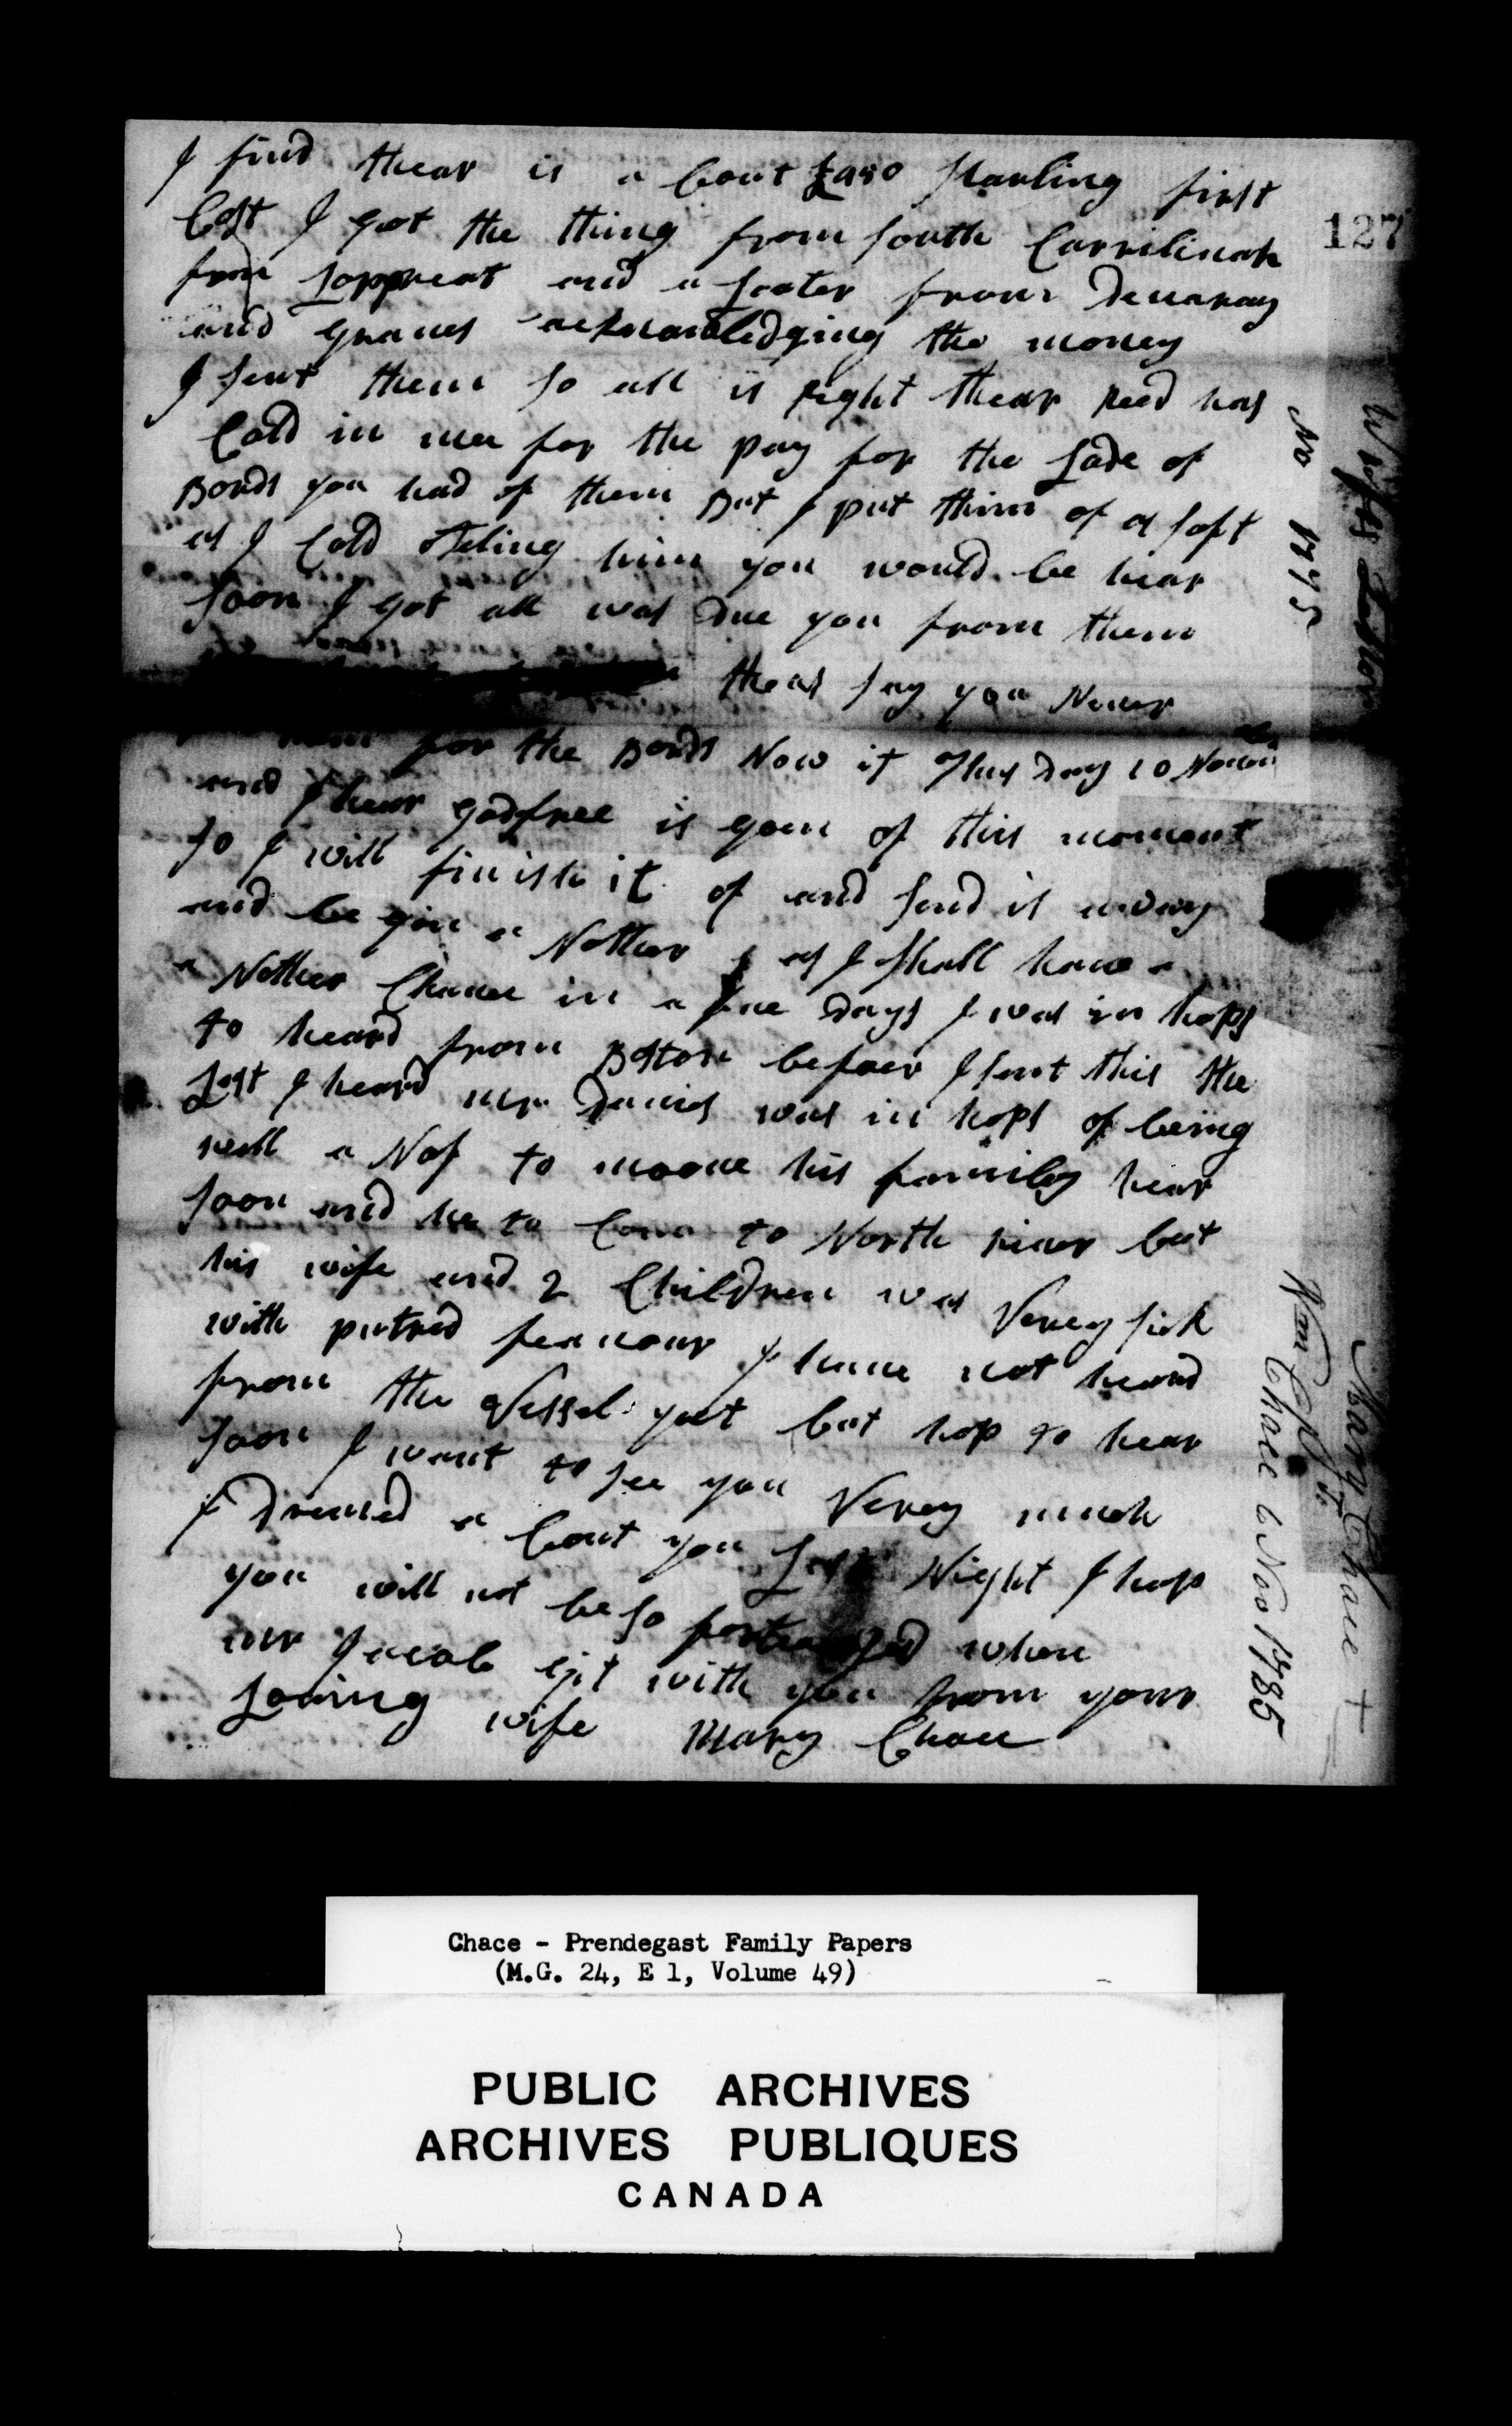 I find thear is a bout £450 starling first
Cost I got the thing from South Carrilinah
from and a Leater from
and acknowledging the money
I sent them so all is right thear Reed has
Cald in mee for the pay for the Lade of
Bords you had of them But I put thim of as soft
as I Cold teling him you would be hear
soon I got all was due you from them
theas say you Never
for the Bords Now it this Day 10
and I hear godfree is gom of this moment
so I will finish it of and send it away
and be gin a Nother as I shall have a
a Nother Chance in a fue Days I was in hops
to heard from Boston befoer I sent this the
Last I heard mr Davis was in hops of being
well a Nof to moove his family hear
soon and he to Come to North river but
his wife and 2 Children was Verey sick
with putred feavour I have not heard
from the Vessel yeet but hop to hear
soon I want to see you Verey much
I dremed a bout you Last Night I hop
you will not be so when
mr Jacob git with you from your
Loving wife Mary Chace
127
Wifes Letter
No
Mary Chace
Chace Nov 1785
Chace - Prendegast Family Papers
(M.G. 24, E 1, Volume 49)
PUBLIC ARCHIVES
ARCHIVES PUBLIQUES
CANADA